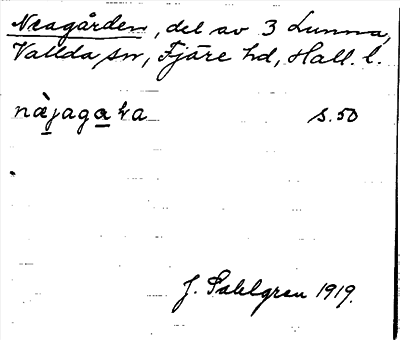 Neagården, del av 3 Lunna,
Vallda sn, Fjäre hd, Hall. l.
nàjagaka s. 50
J. Sahlgren 1919.